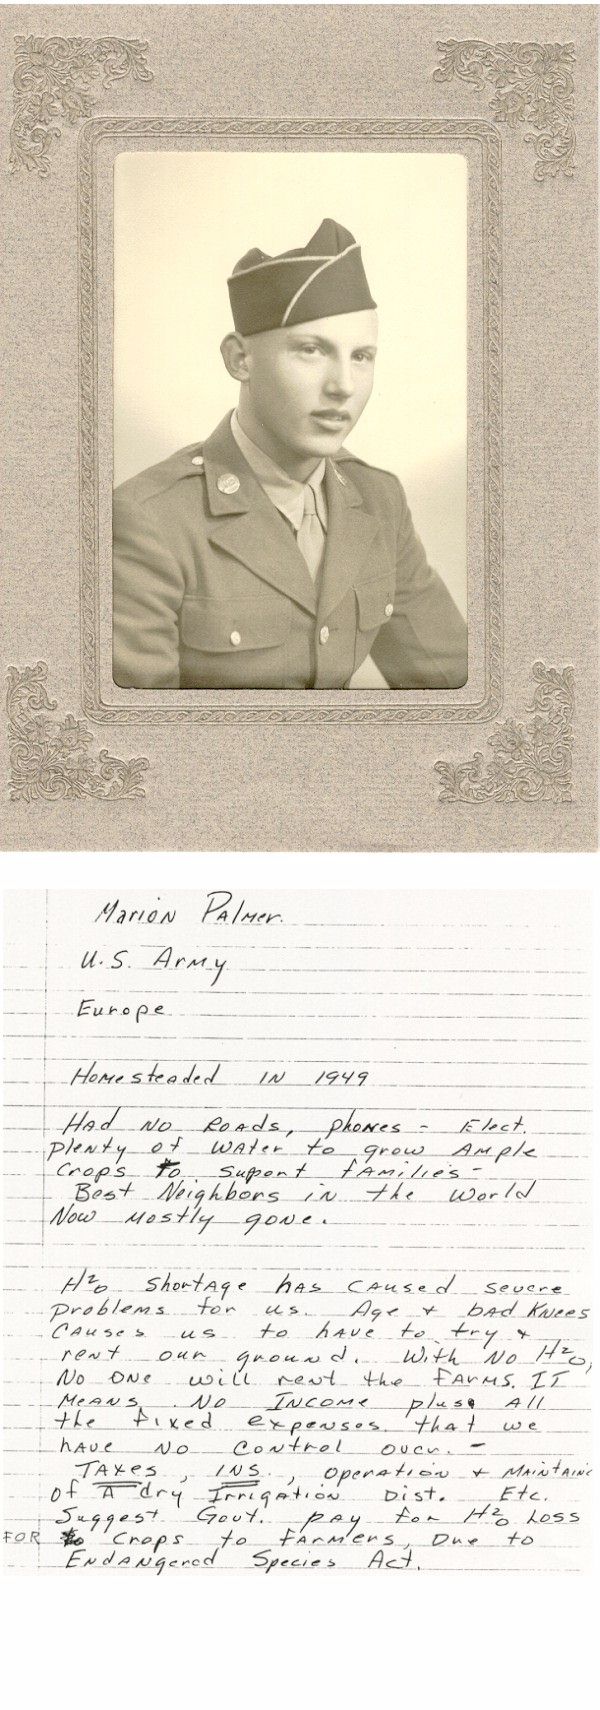 Marion Palmer.
U.S. Army
Europe
Homesteaded in 1949
Had no Roads, phones - Elect.
plenty of water to grow Ample
Crops to suport families -
Best Neighbors in the world
Now mostly gone.
H²o shortage has caused severe
problems for us. Age & bad knees
causes us to have to try &
rent our ground. With no H²o,
No one will rent the farms. It
means no Income plus All
the fixed expenses that we
have no control over. -
Taxes, Ins., operation & maintaine
of A dry Irrigation Dist. Etc.
Suggest Govt. pay for H²o Loss
FOR Crops to farmers, Due to
Endangered Species Act.